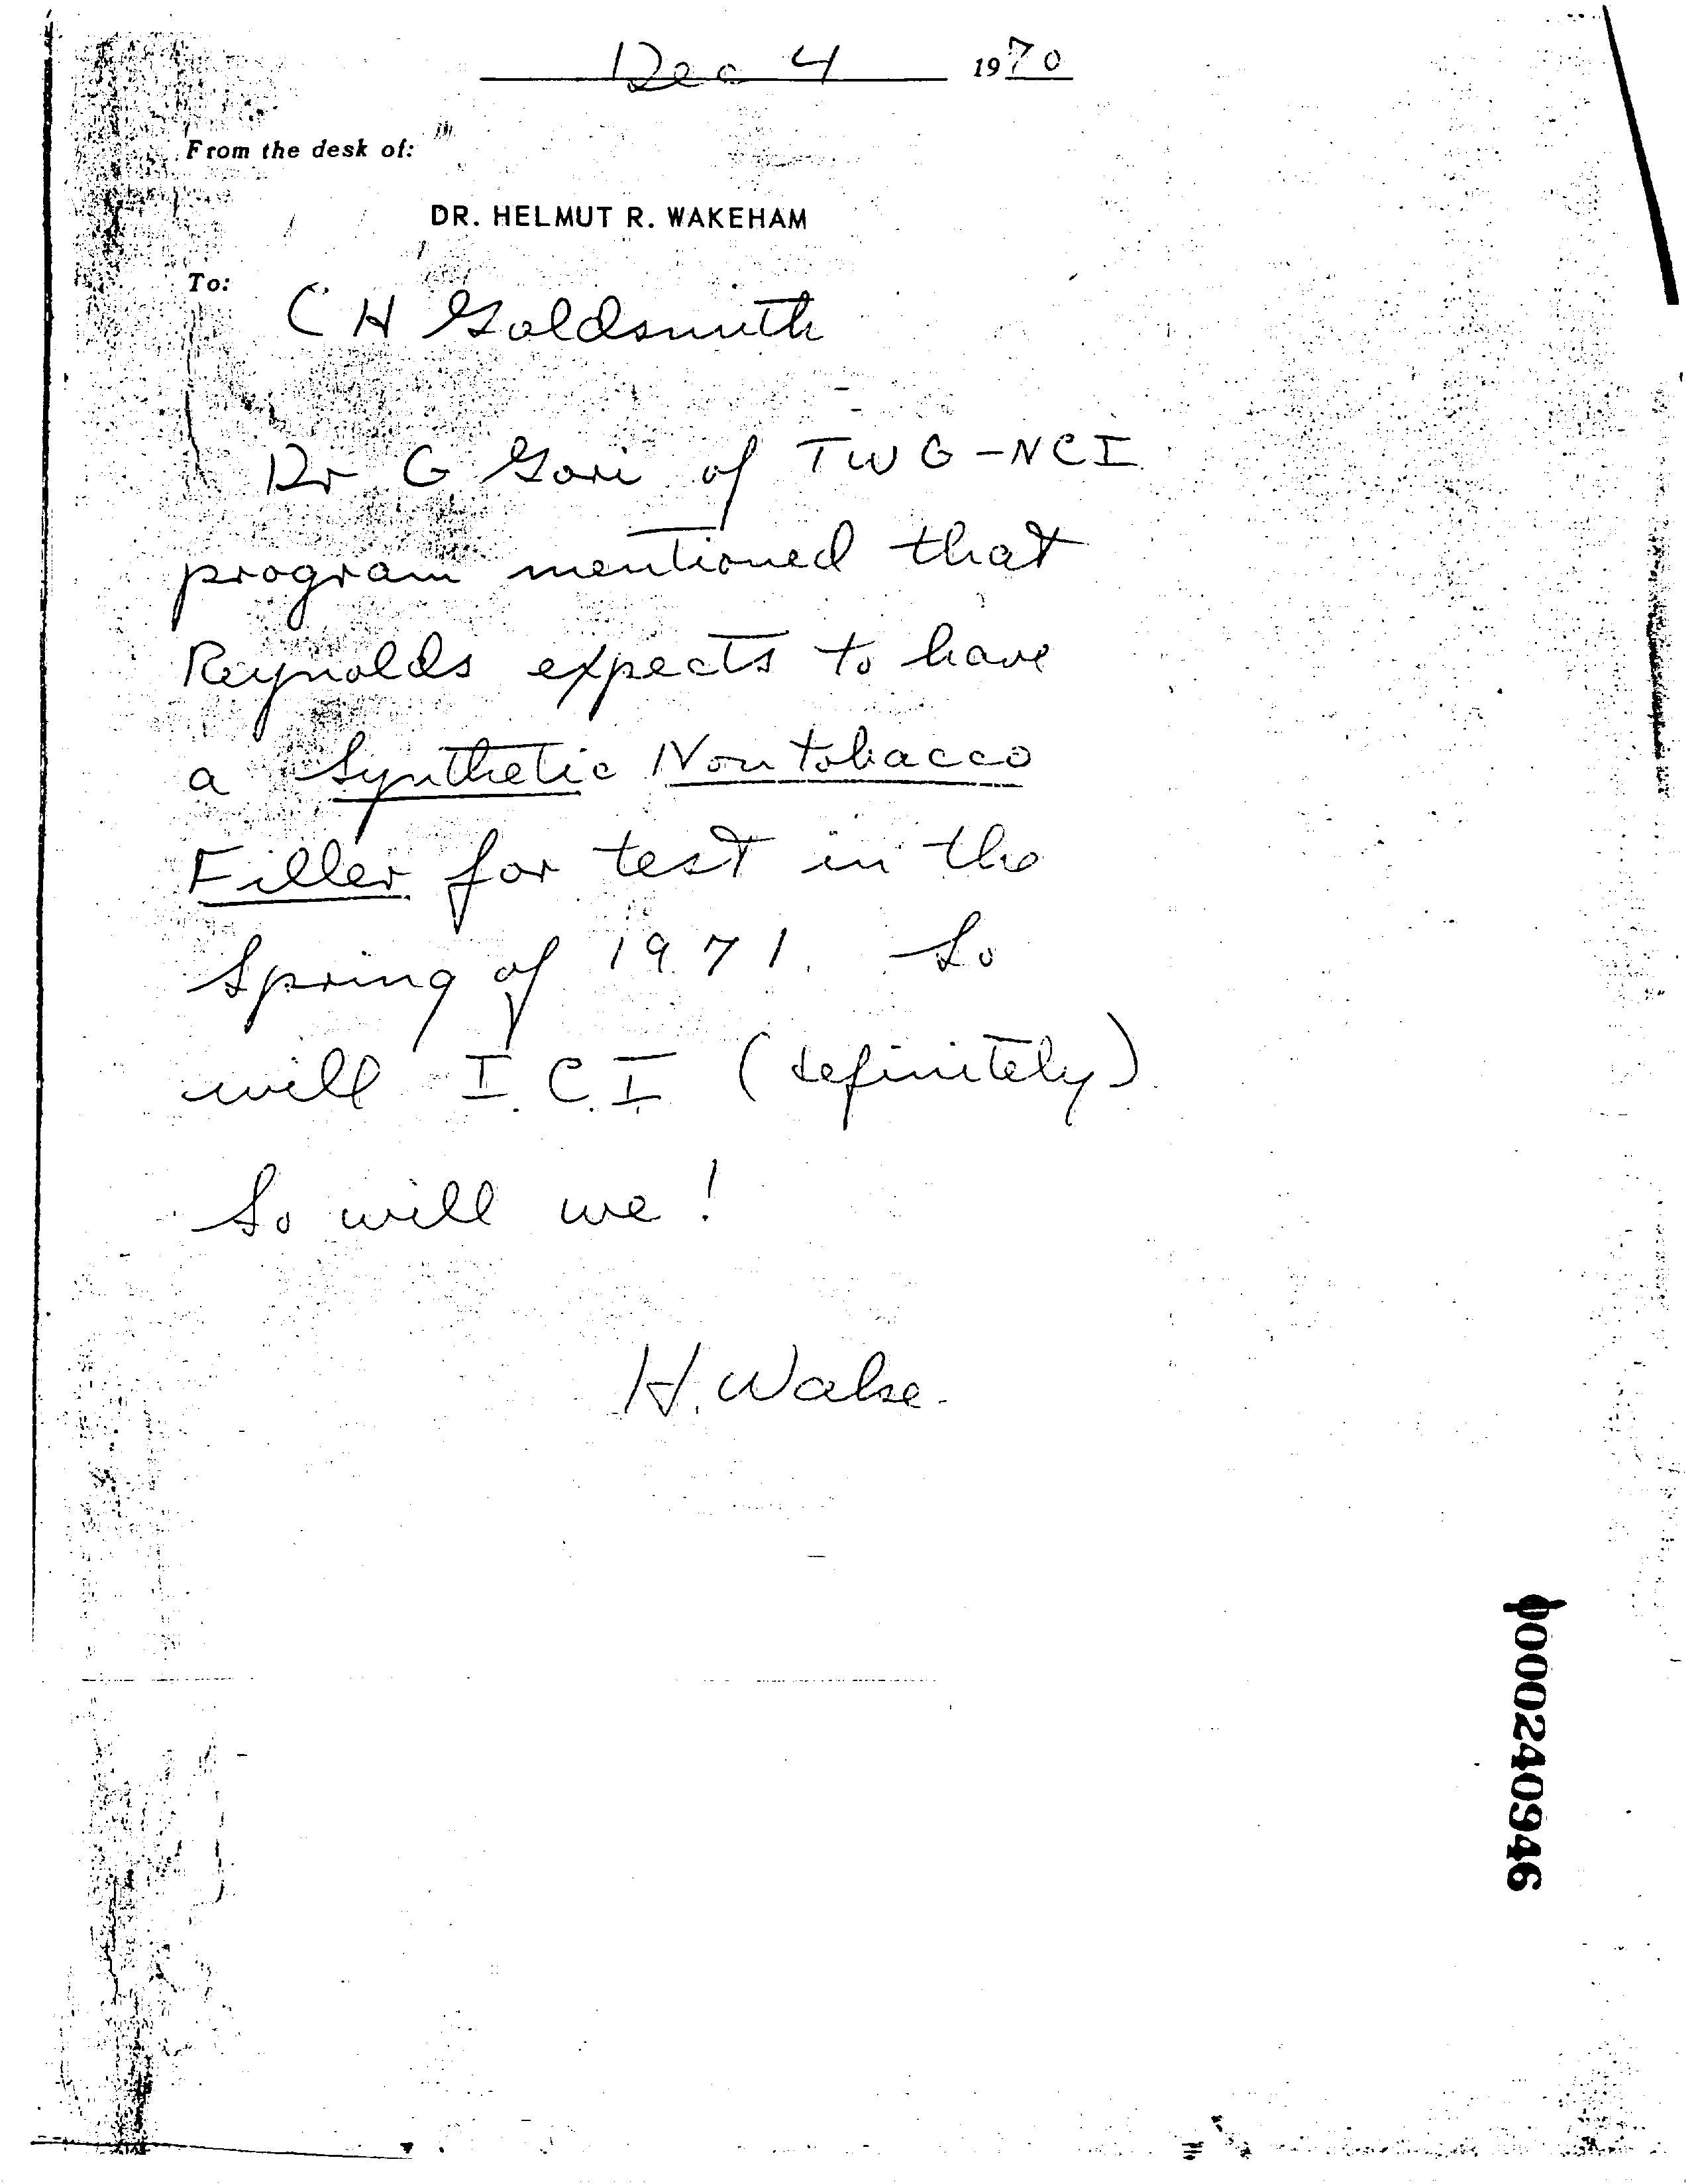 Dec 4 1970
From the desk of:
DR. HELMUT R. WAKEHAM
To:
C H Goldsmith
Dr G Gori of TWG-NCI
program mentioned that
Reynolds expects to have
a Synthetic Nontobacco
Filler for test in the
Spring of 1971. So
will I.C.I. (definitely)
So will we!
H. Wake.
0000240946